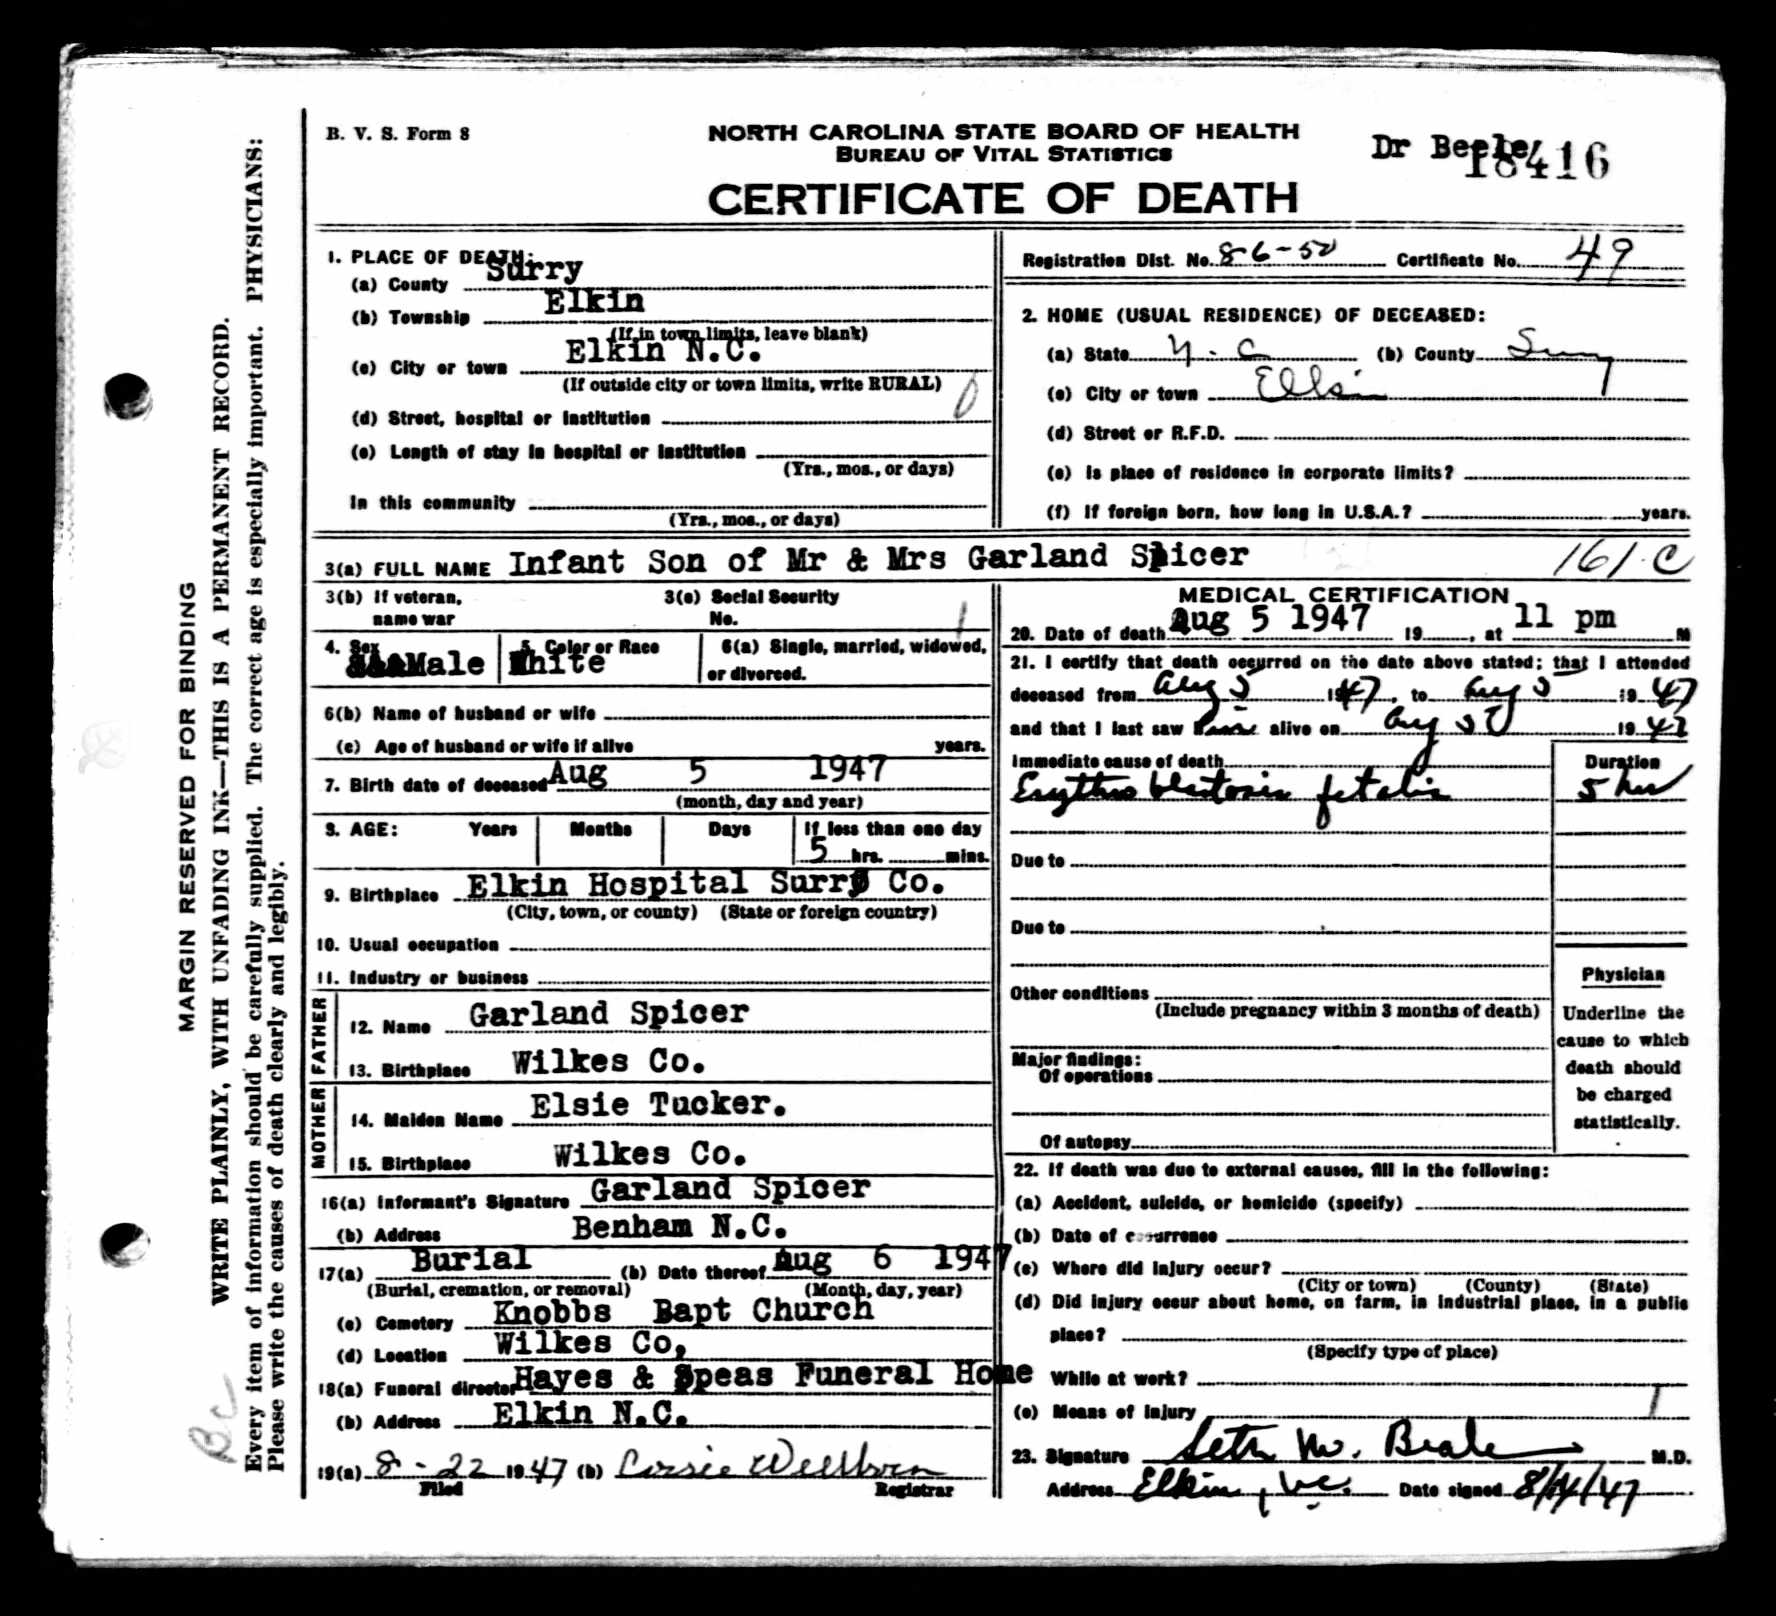 B. V. S. Form 8
NORTH CAROLINA STATE BOARD OF HEALTH
BUREAU OF VITAL STATISTICS
CERTIFICATE OF DEATH
Dr Beele
18416
MARGIN RESERVED FOR BINDING
WRITE PLAINLY, WITH UNFADING INK—THIS IS A PERMANENT RECORD.
Every item of information should be carefully supplied. The correct age is especially important. PHYSICIANS:
Please write the causes of death clearly and legibly.
Bc
1. PLACE OF DEATH:
(a) County Surry
(b) Township Elkin
(If in town limits, leave blank)
(c) City or town Elkin N.C.
(If outside city or town limits, write RURAL)
(d) Street, hospital or institution
(e) Length of stay in hospital or institution
(Yrs., mos., or days)
In this community
(Yrs., mos., or days)
Registration Dist. No. 86-50 Certificate No. 49
2. HOME (USUAL RESIDENCE) OF DECEASED:
(a) State N.C (b) County Surry
(c) City or town Elkin
(d) Street or R.F.D.
(e) Is place of residence in corporate limits?
(f) If foreign born, how long in U.S.A.? years.
3(a) FULL NAME Infant Son of Mr & Mrs Garland Spicer
161-C
3(b) If veteran, name war
3(c) Social Security No.
4. Sex Male
5. Color or Race White
6(a) Single, married, widowed, or divorced.
6(b) Name of husband or wife
(c) Age of husband or wife if alive years.
7. Birth date of deceased Aug 5 1947
(month, day and year)
8. AGE: Years Months Days If less than one day
5 hrs. mins.
9. Birthplace Elkin Hospital Surry Co.
(City, town, or county) (State or foreign country)
10. Usual occupation
11. Industry or business
FATHER
12. Name Garland Spicer
13. Birthplace Wilkes Co.
MOTHER
14. Maiden Name Elsie Tucker.
15. Birthplace Wilkes Co.
16(a) Informant's Signature Garland Spicer
(b) Address Benham N.C.
17(a) Burial (b) Date thereof Aug 6 1947
(Burial, cremation, or removal) (Month, day, year)
(c) Cemetery Knobbs Bapt Church
(d) Location Wilkes Co,
18(a) Funeral director Hayes & Speas Funeral Home
(b) Address Elkin N.C.
19(a) 8-22 1947 (b) Cossie Wellborn
Filed Registrar
MEDICAL CERTIFICATION
20. Date of death Aug 5 1947 19 , at 11 pm M
21. I certify that death occurred on the date above stated; that I attended
deceased from Aug 5 1947, to Aug 5 1947
and that I last saw him alive on Aug 5 1947
Immediate cause of death Duration
Erythroblastosis fetalis 5 hrs
Due to
Due to
Other conditions
(Include pregnancy within 3 months of death)
Major findings:
Of operations
Of autopsy
Physician
Underline the
cause to which
death should
be charged
statistically.
22. If death was due to external causes, fill in the following:
(a) Accident, suicide, or homicide (specify)
(b) Date of occurrence
(c) Where did injury occur?
(City or town) (County) (State)
(d) Did injury occur about home, on farm, in industrial place, in a public
place?
(Specify type of place)
While at work?
(e) Means of injury
23. Signature Seth M. Beale M.D.
Address Elkin, N.C. Date signed 8/14/47